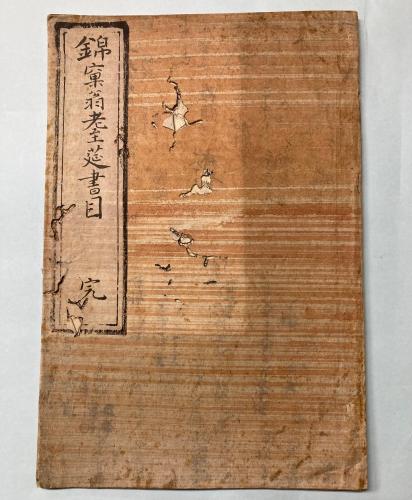 錦窠翁耋莚書目 完